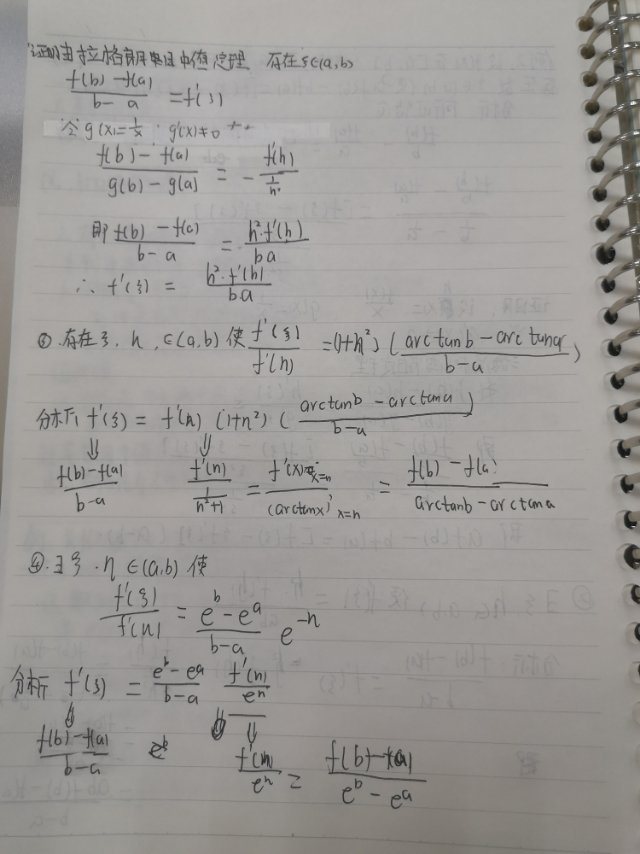 证明:由拉格朗日中值定理 存在ξ∈(a,b)
f(b)-f(a)/b-a = f'(ξ)
令g(x)=1/x g'(x)≠0
f(b)-f(a)/g(b)-g(a) = - f'(h)/(1/h²)
即 f(b)-f(a)/b-a = h²·f'(h)/ba
∴ f'(ξ) = h²·f'(h)/ba
③.存在ξ,h,∈(a,b)使 f'(ξ)/f'(η) =(1+h²)(arctanb-arctana/b-a)
分析 f'(ξ) = f'(η)(1+η²)(arctanb-arctana/b-a)
⇓ ⇓
f(b)-f(a)/b-a f'(η)/(1/η²+1) = f'(x)x=η/(arctanx)'x=η = f(b)-f(a)/arctanb-arctana
④.∃ξ.η∈(a,b)使
f'(ξ)/f'(η) = e^b-e^a/b-a e^-η
分析 f'(ξ) = e^b-e^a/b-a f'(η)/e^η
⇓ ⇓
f(b)-f(a)/b-a f'(η)/e^η = f(b)-f(a)/e^b-e^a